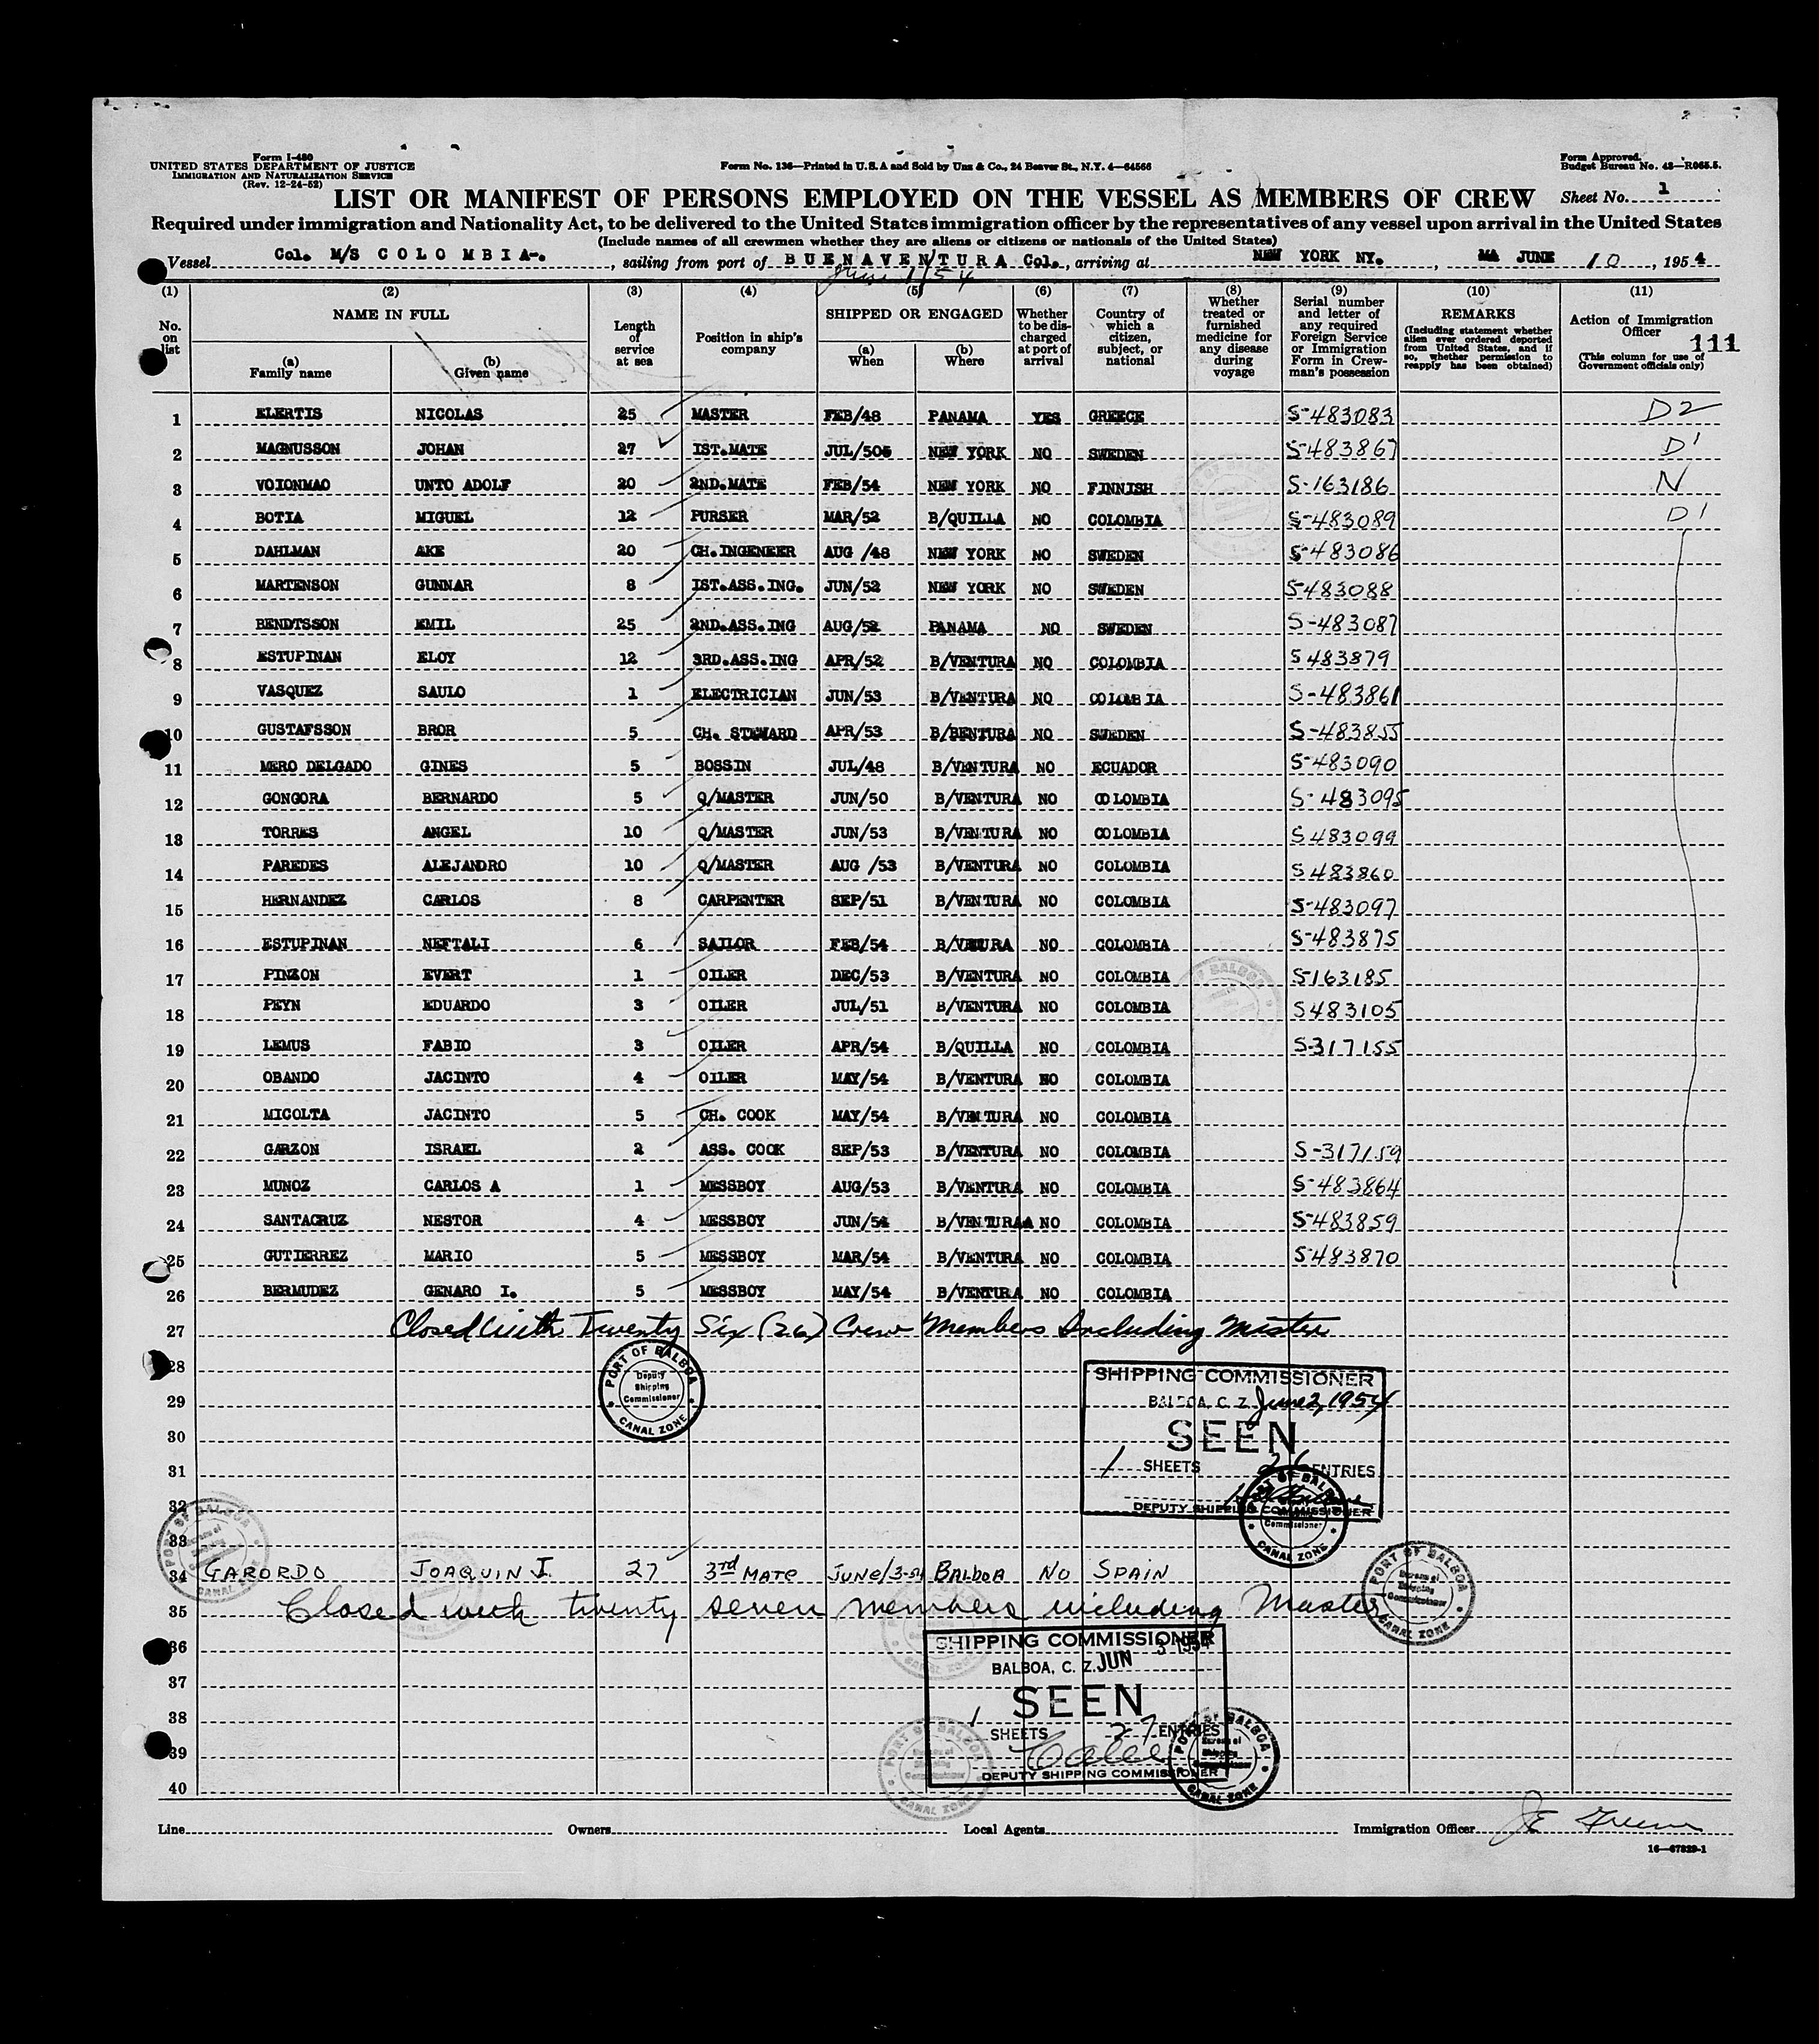 Form I-480
UNITED STATES DEPARTMENT OF JUSTICE
IMMIGRATION AND NATURALIZATION SERVICE
(Rev. 12-24-52)
Form No. 136—Printed in U.S.A and Sold by Unz & Co., 24 Beaver St., N.Y. 4—64566
Form Approved.
Budget Bureau No. 43—R065.5.
LIST OR MANIFEST OF PERSONS EMPLOYED ON THE VESSEL AS MEMBERS OF CREW
Sheet No. 1
Required under immigration and Nationality Act, to be delivered to the United States immigration officer by the representatives of any vessel upon arrival in the United States
(Include names of all crewmen whether they are aliens or citizens or nationals of the United States)
Vessel Col. M/S COLOMBIA-. , sailing from port of BUENAVENTURA Col., arriving at NEW YORK NY. , MA JUNE 10 , 1954
June 1/54
(1) (2) (3) (4) (5) (6) (7) (8) (9) (10) (11)
No. on list
NAME IN FULL
(a) Family name
(b) Given name
Length of service at sea
Position in ship's company
SHIPPED OR ENGAGED
(a) When
(b) Where
Whether to be discharged at port of arrival
Country of which a citizen, subject, or national
Whether treated or furnished medicine for any disease during voyage
Serial number and letter of any required Foreign Service or Immigration Form in Crewman's possession
REMARKS
(Including statement whether alien ever ordered deported from United States, and if so, whether permission to reapply has been obtained)
Action of Immigration Officer
111
(This column for use of Government officials only)
1 ELERTIS NICOLAS 25 MASTER FEB/48 PANAMA YES GREECE S-483083 D2
2 MAGNUSSON JOHAN 27 IST.MATE JUL/505 NEW YORK NO SWEDEN S-483867 D1
3 VOIONMAO UNTO ADOLF 20 2ND.MATE FEB/54 NEW YORK NO FINNISH S-163186 N
4 BOTIA MIGUEL 12 PURSER MAR/52 B/QUILLA NO COLOMBIA S-483089 D1
5 DAHLMAN AKE 20 CH.INGENEER AUG /48 NEW YORK NO SWEDEN S-483086
6 MARTENSON GUNNAR 8 IST.ASS.ING. JUN/52 NEW YORK NO SWEDEN S-483088
7 BENDTSSON EMIL 25 2ND.ASS.ING AUG/52 PANAMA NO SWEDEN S-483087
8 ESTUPINAN ELOY 12 3RD.ASS.ING APR/52 B/VENTURA NO COLOMBIA S 483879
9 VASQUEZ SAULO 1 ELECTRICIAN JUN/53 B/VENTURA NO COLOMBIA S-483861
10 GUSTAFSSON BROR 5 CH. STEWARD APR/53 B/BENTURA NO SWEDEN S-483855
11 MERO DELGADO GINES 5 BOSSIN JUL/48 B/VENTURA NO ECUADOR S-483090
12 GONGORA BERNARDO 5 Q/MASTER JUN/50 B/VENTURA NO COLOMBIA S-483095
13 TORRES ANGEL 10 Q/MASTER JUN/53 B/VENTURA NO COLOMBIA S 483099
14 PAREDES ALEJANDRO 10 Q/MASTER AUG /53 B/VENTURA NO COLOMBIA S 483860
15 HERNANDEZ CARLOS 8 CARPENTER SEP/51 B/VENTURA NO COLOMBIA S-483097
16 ESTUPINAN NEFTALI 6 SAILOR FEB/54 NO COLOMBIA S-483875
17 PINZON EVERT 1 OILER DEC/53 B/VENTURA NO COLOMBIA S-163185
18 PEYN EDUARDO 3 OILER JUL/51 B/VENTURA NO COLOMBIA S483105
19 LEMUS FABIO 3 OILER APR/54 B/QUILLA NO COLOMBIA S-317155
20 OBANDO JACINTO 4 OILER MAY/54 B/VENTURA NO COLOMBIA
21 MICOLTA JACINTO 5 CH. COOK MAY/54 B/VENTURA NO COLOMBIA
22 GARZON ISRAEL 2 ASS. COOK SEP/53 B/VENTURA NO COLOMBIA S-317159
23 MUNOZ CARLOS A 1 MESSBOY AUG/53 B/VENTURA NO COLOMBIA S-483864
24 SANTACRUZ NESTOR 4 MESSBOY JUN/54 B/VENTURAA NO COLOMBIA S-483859
25 GUTIERREZ MARIO 5 MESSBOY MAR/54 B/VENTURA NO COLOMBIA S-483870
26 BERMUDEZ GENARO I. 5 MESSBOY MAY/54 B/VENTURA NO COLOMBIA
27 Closed with Twenty Six (26) Crew Members Including Master
28
29
30
31
32
33
PORT OF BALBOA
Deputy Shipping Commissioner
CANAL ZONE
SHIPPING COMMISSIONER
BALBOA, C. Z. June 2, 1954
SEEN
1 SHEETS 26 ENTRIES
DEPUTY SHIPPING COMMISSIONER
34 GARORDO JOAQUIN I. 27 3rd MATE JUNE/3-54 BALBOA NO SPAIN
35 Closed with twenty seven members including Master
36
37
38
39
40
SHIPPING COMMISSIONER
BALBOA, C. Z. JUN 3 1954
SEEN
1 SHEETS 27 ENTRIES
DEPUTY SHIPPING COMMISSIONER
PORT OF BALBOA
CANAL ZONE
Line Owners Local Agents Immigration Officer
16—67829-1